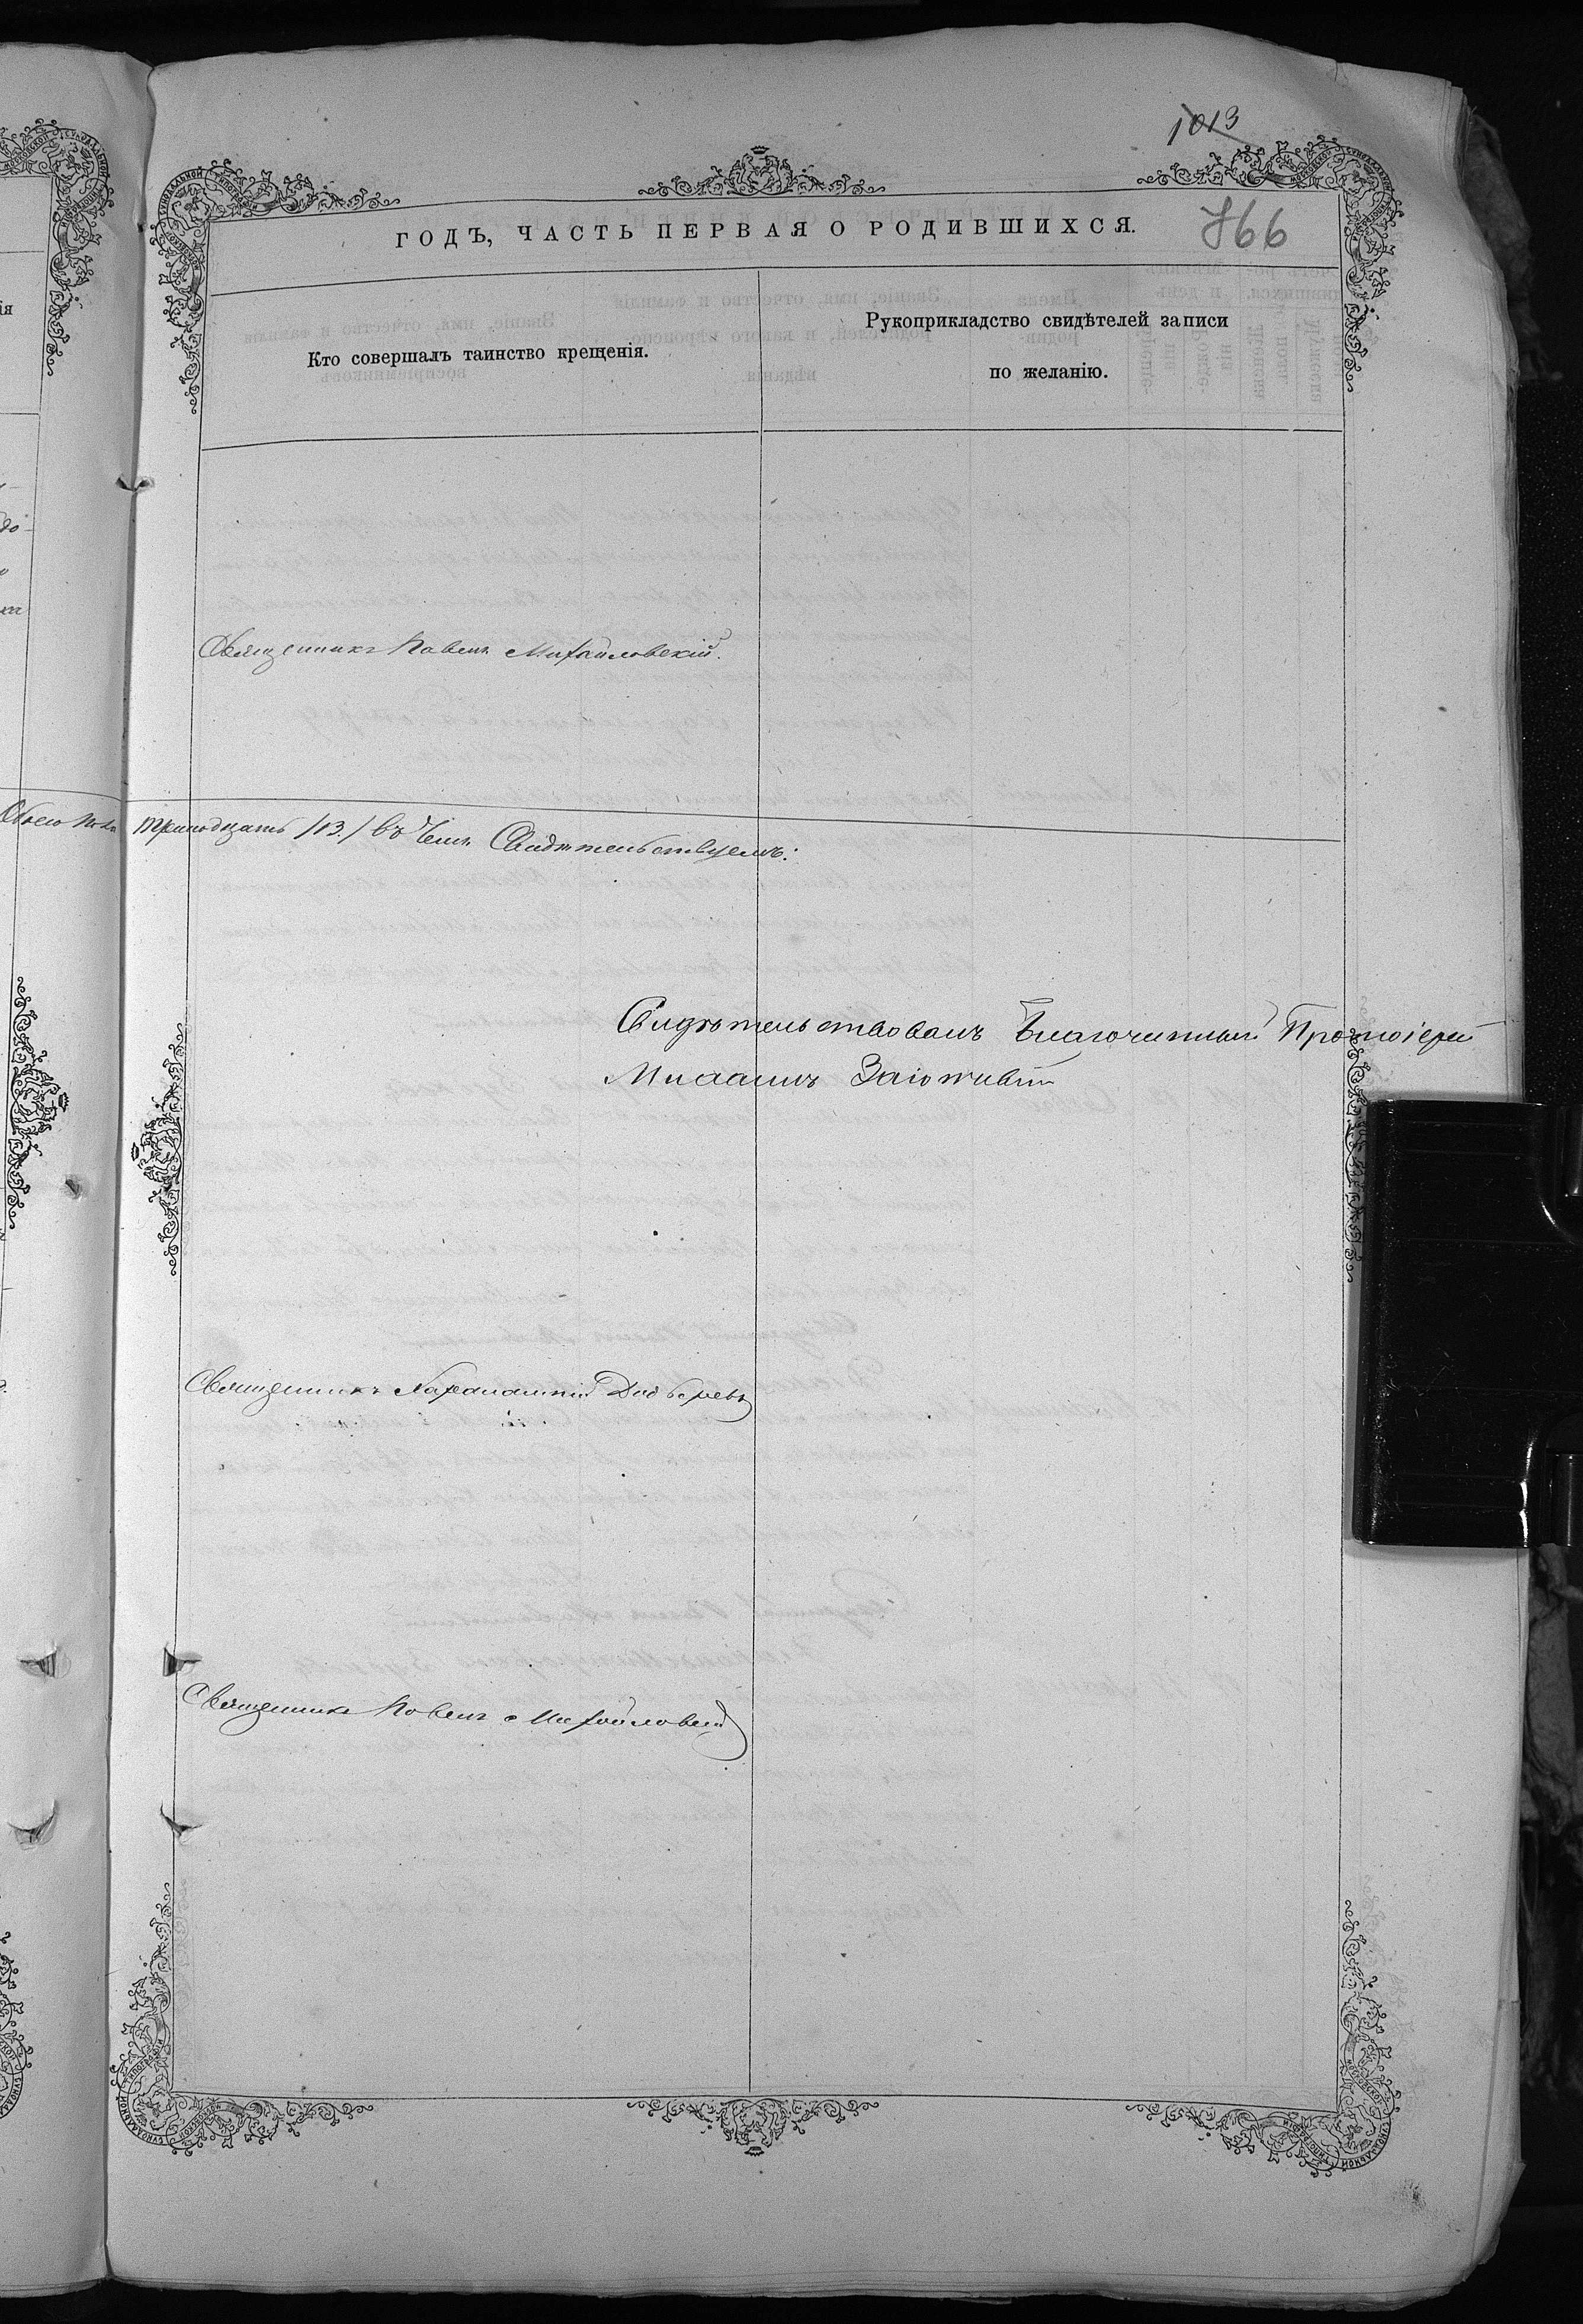 1013
766
ГОДЪ, ЧАСТЬ ПЕРВАЯ О РОДИВШИХСЯ.
Кто совершалъ таинство крещенія.
Рукоприкладство свидѣтелей записи
по желанію.
Священникъ Павелъ Михайловскій.
Обоего пола тринадцать /13./ въ чемъ Свидѣтельствуемъ:
Свидѣтельствовалъ Благочинный Протоіерей
Священникъ
Священникъ Павелъ Михайловскій